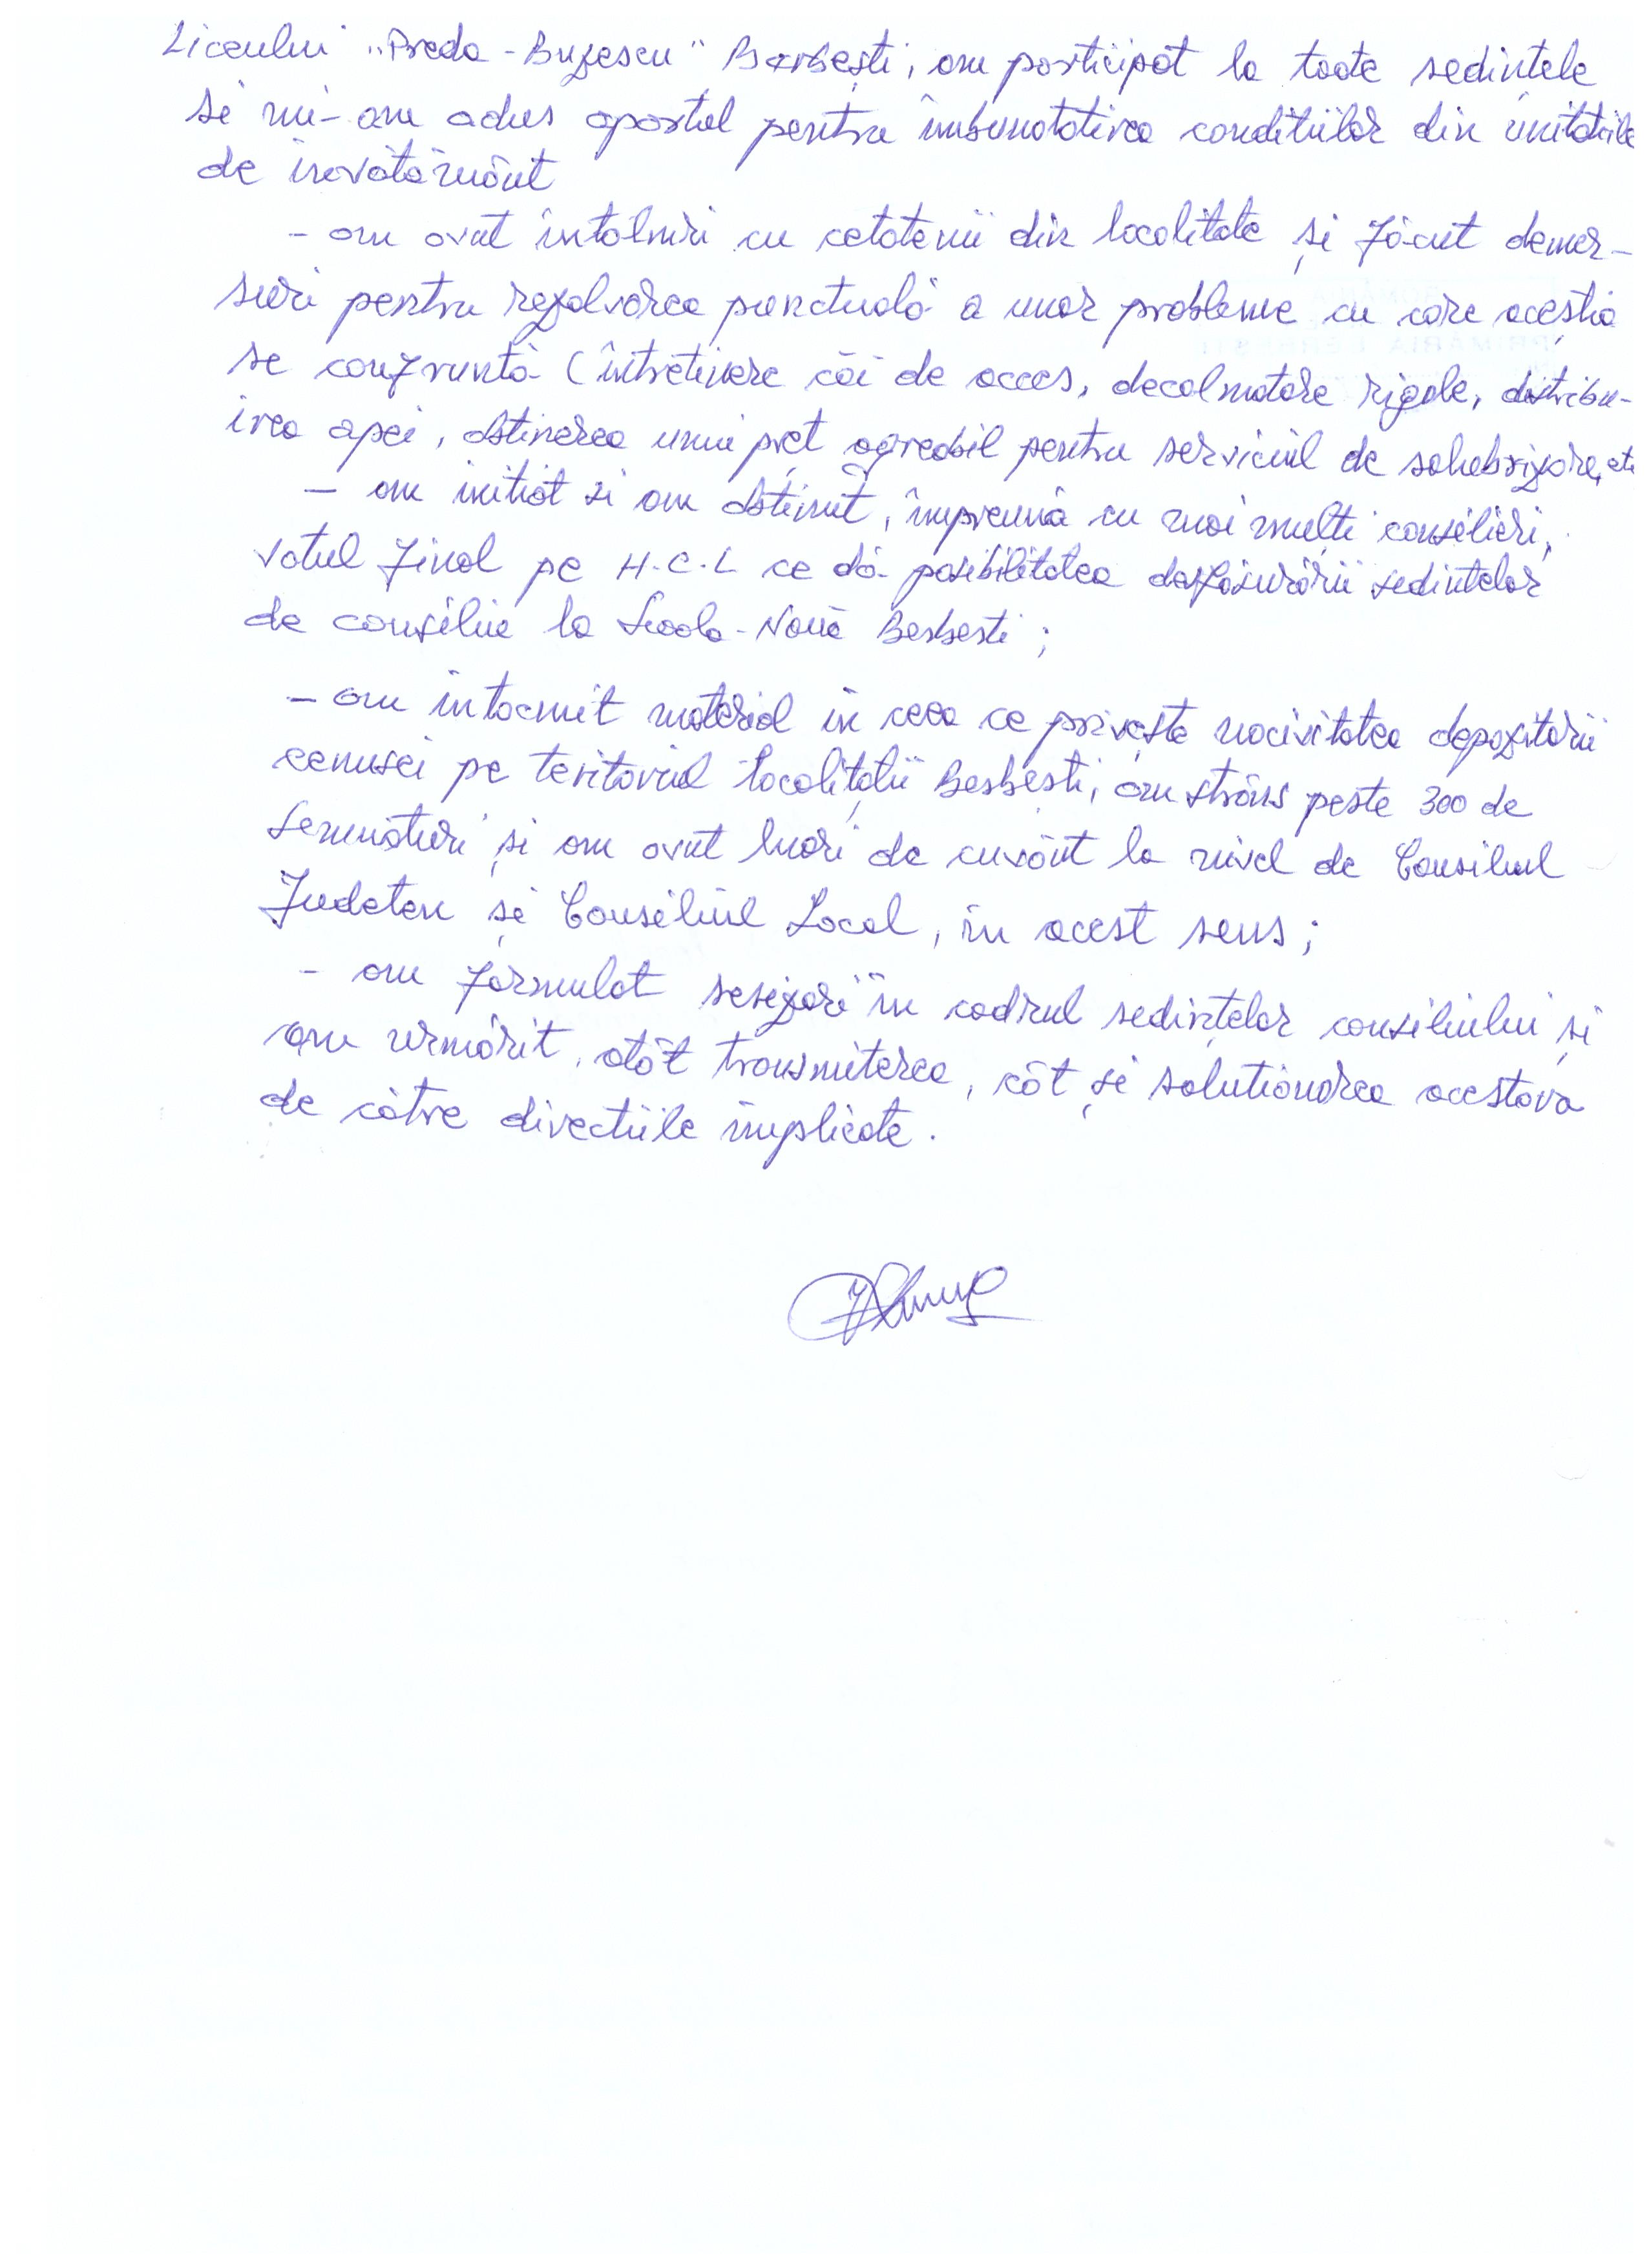 Liceului „Preda-Buzescu” Berbești, am participat la toate sedințele
si mi-am adus aportul pentru îmbunatatirea conditiilor din unitatiile
de invatământ
- am avut întâlniri cu cetatenii din localitate și făcut demer-
suri pentru rezolvarea punctuală a unor probleme cu care aceștia
se confruntă (întretinere căi de acces, decolmatare rigole, distribu-
irea apei, obtinerea unui preț agreabil pentru serviciul de salubrizare, etc
- am initiat si am obtinut, împreună cu mai multi consilieri,
votul final pe H.C.L ce dă posibilitatea desfăsurării sedintelor
de consiliu la Scoala-Nouă Berbesti;
- am intocmit material in ceea ce privește nocivitatea depozitării
cenusei pe teritoriul localității Berbești, am strâns peste 300 de
semnături și am avut luări de cuvânt la nivel de Consiliul
Judetean și Consiliul Local, în acest sens;
- am formulat sesizări în cadrul sedințelor consiliului și
am urmărit, atât transmiterea, cât și solutionarea acestora
de către directiile implicate.